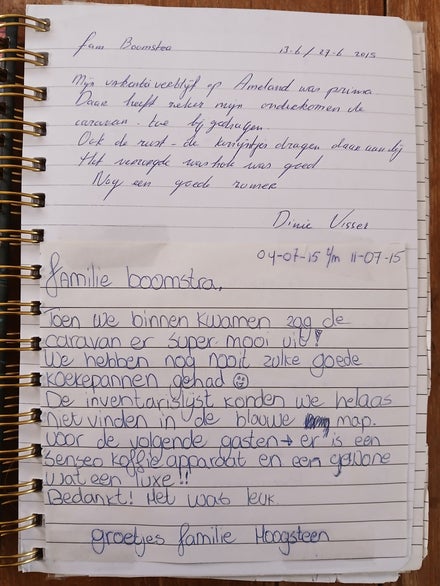 fam Boomstra 13-6 / 27-6 2015
Mijn vakantie verblijf op Ameland was prima.
Daar heeft zeker mijn onderkomen de
caravan toe bijgedragen.
Ook de rust - de konijntjes dragen daar aan bij
Het verzorgde was hok was goed
Nog een goede zomer
Dinie Visser
04-07-15 t/m 11-07-15
familie boomstra,
Toen we binnen kwamen zag de
caravan er super mooi uit!
We hebben nog nooit zulke goede
koekepannen gehad ☺
De inventarislijst konden we helaas
niet vinden in de blauwe map.
voor de volgende gasten → er is een
senseo koffie apparaat en een gewone
wat een luxe!!
Bedankt! Het was leuk
groetjes familie Hoogsteen